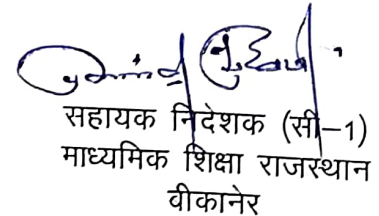 सहायक निदेशक (सी-1)
माध्यमिक शिक्षा राजस्थान
वीकानेर